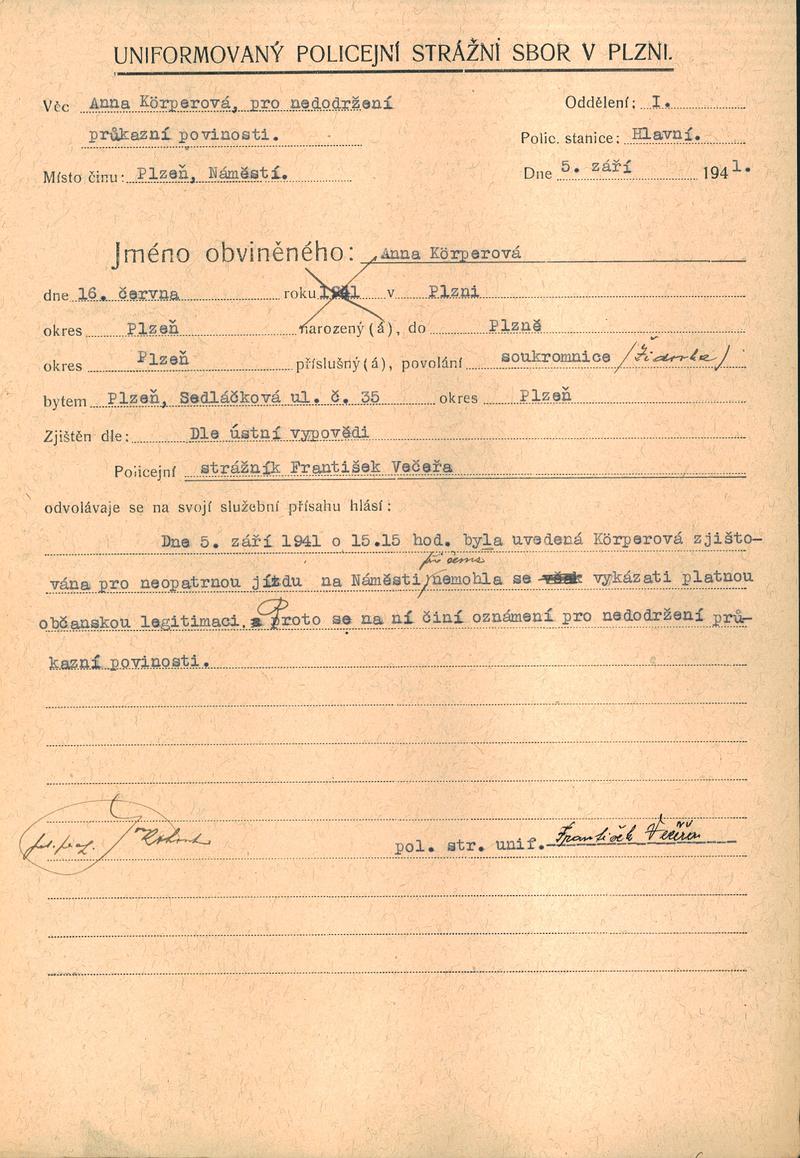 UNIFORMOVANÝ POLICEJNÍ STRÁŽNÍ SBOR V PLZNI.
Věc Anna Körperová, pro nedodržení
průkazní povinosti.
Místo činu: Plzeň, Náměstí.
Oddělení: I.
Polic. stanice: Hlavní.
Dne 5. září 1941.
Jméno obviněného: Anna Körperová
dne 16. června roku 1941 v Plzni
okres Plzeň narozený(á), do Plzně
okres Plzeň příslušný(á), povolání soukromnice /Židovka/
bytem Plzeň, Sedláčková ul. č. 35 okres Plzeň
Zjištěn dle: Dle ústní vypovědi
Policejní strážník František Večeřa
odvolávaje se na svojí služební přísahu hlásí:
Dne 5. září 1941 o 15.15 hod. byla uvedená Körperová zjišto-
při čemž
vána pro neopatrnou jízdu na Náměstí/nemohla se však vykázati platnou
občanskou legitimaci. a Proto se na ní činí oznámení pro nedodržení prů-
kazní povinosti.
pol. str. unif. František Večeřa